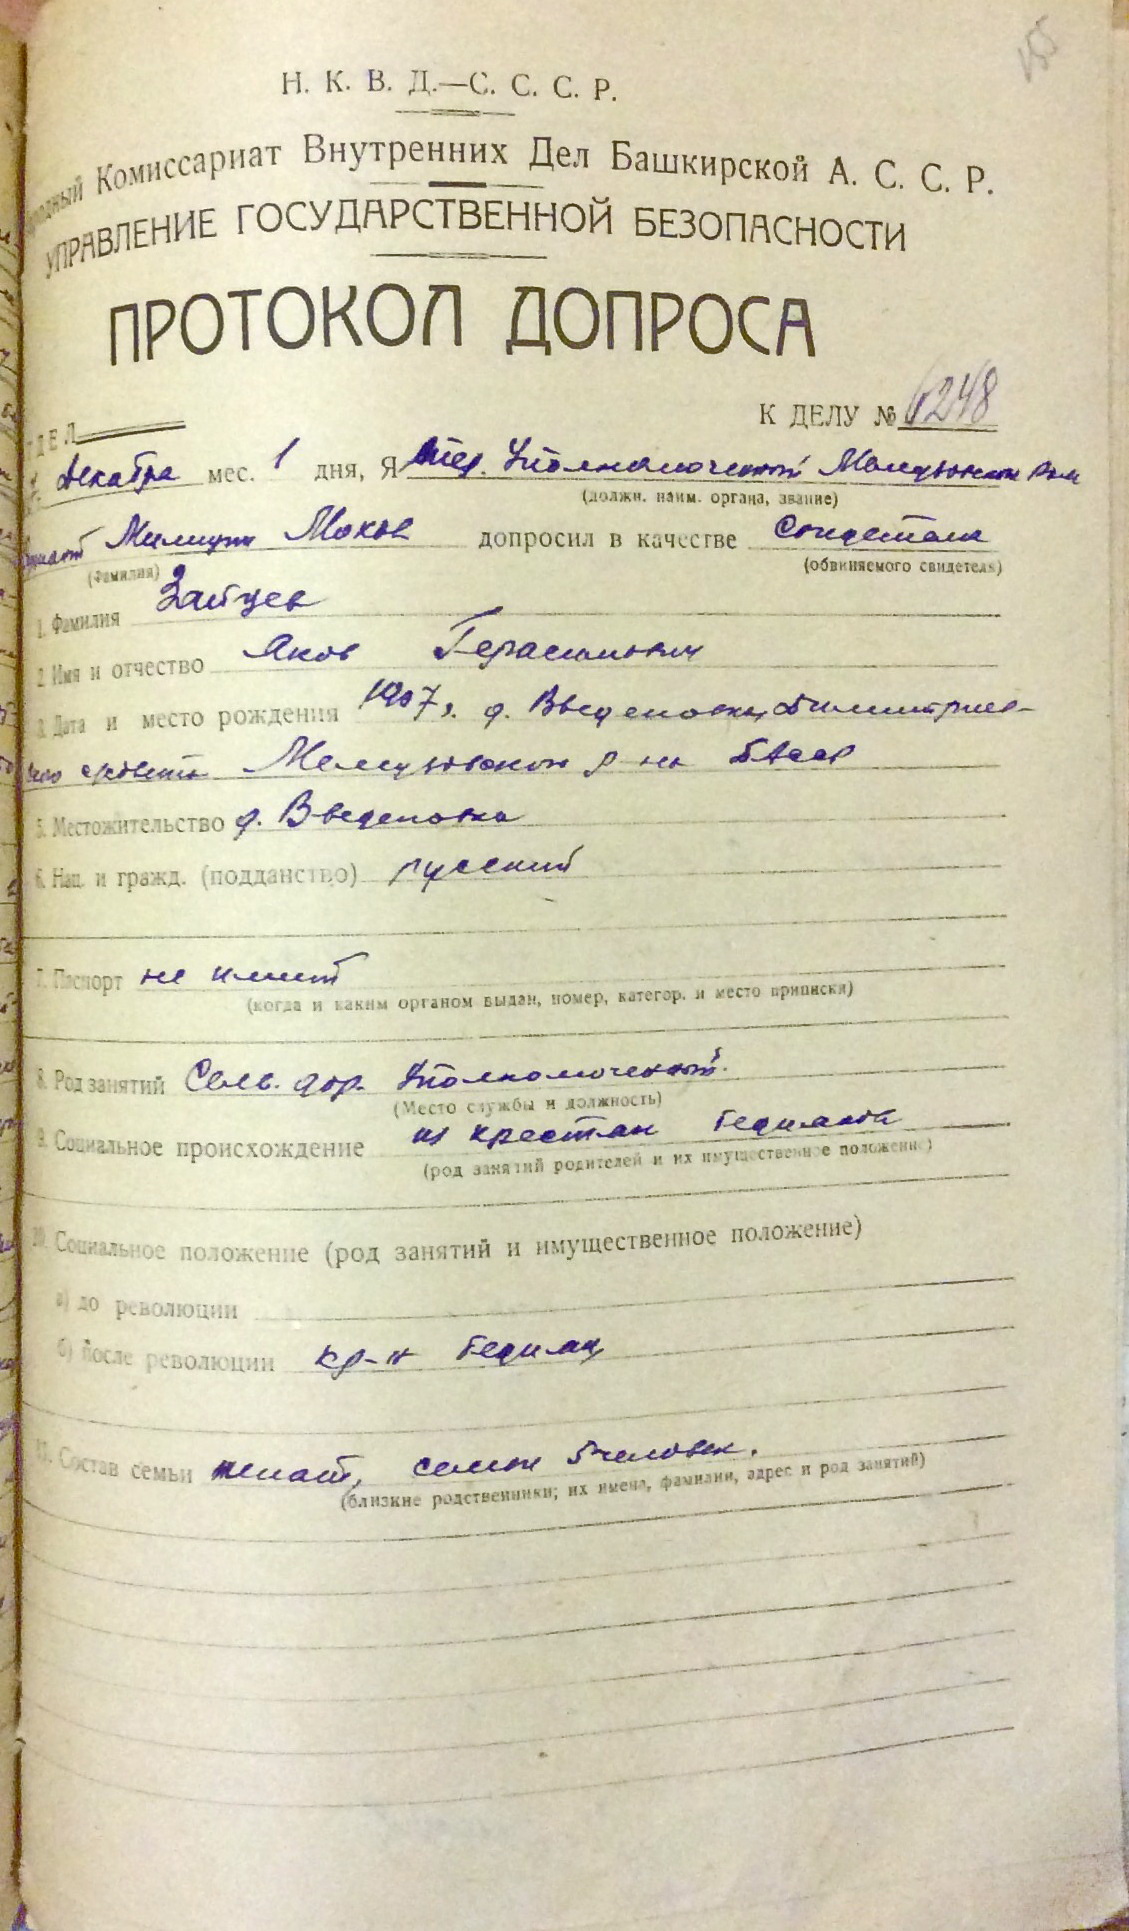 155
Н. К. В. Д.—С. С. С. Р.
Комиссариат Внутренних Дел Башкирской А. С. С. Р.
УПРАВЛЕНИЕ ГОСУДАРСТВЕННОЙ БЕЗОПАСНОСТИ
ПРОТОКОЛ ДОПРОСА
К ДЕЛУ № 6248
декабря мес. 1 дня, Я Уполномоченный Мелеузовском
(должн. наим. органа, звание)
Милиции Мохов допросил в качестве свидетеля
(Фамилия) (обвиняемого свидетеля)
1. Фамилия Зайцев
2. Имя и отчество Яков Герасимович
3. Дата и место рождения 1907 г. д. Введеновка, Димитриев-
совета Мелеузовскон р на БАССР
5. Местожительство д. Введеновка
6. Нац. и гражд. (подданство) русский
7. Паспорт не имеет
(когда и каким органом выдан, номер, категор. и место приписки)
8. Род занятий Сель. дор. Уполномоченный
(Место службы и должность)
9. Социальное происхождение из крестян бедняков
(род занятий родителей и их имущественное положение)
10. Социальное положение (род занятий и имущественное положение)
а) до революции
б) после революции кр-н бедняк
11. Состав семьи женат, семья 5 человек.
(близкие родственники; их имена, фамилии, адрес и род занятий)